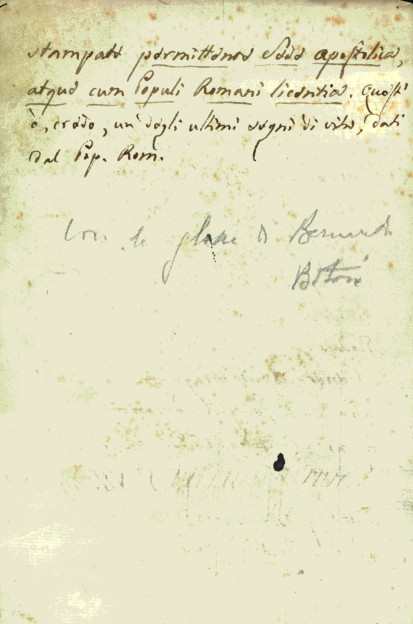 stampato permittente Sede apostolica,
atque cum Populi Romani licentia. Quest'
è, credo, un' degli ultimi segni di vita, dati
dal Pop. Rom.
Con le glosse di Bernardo